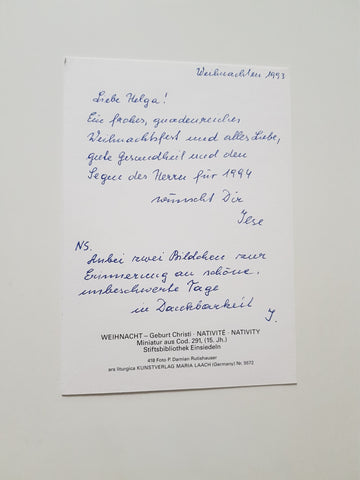 Weihnachten 1993
Liebe Helga!
Ein frohes, gnadenreiches
Weihnachtsfest und alles Liebe,
gute Gesundheit und den
Segen des Herrn für 1994
wünscht Dir
Ilse
NS.
Anbei zwei Bildchen zur
Erinnerung an schöne,
unbeschwerte Tage
in Dankbarkeit
I.
WEIHNACHT – Geburt Christi · NATIVITÉ · NATIVITY
Miniatur aus Cod. 291, (15. Jh.)
Stiftsbibliothek Einsiedeln
418 Foto P. Damian Rutishauser
ars liturgica KUNSTVERLAG MARIA LAACH (Germany) Nr. 5672